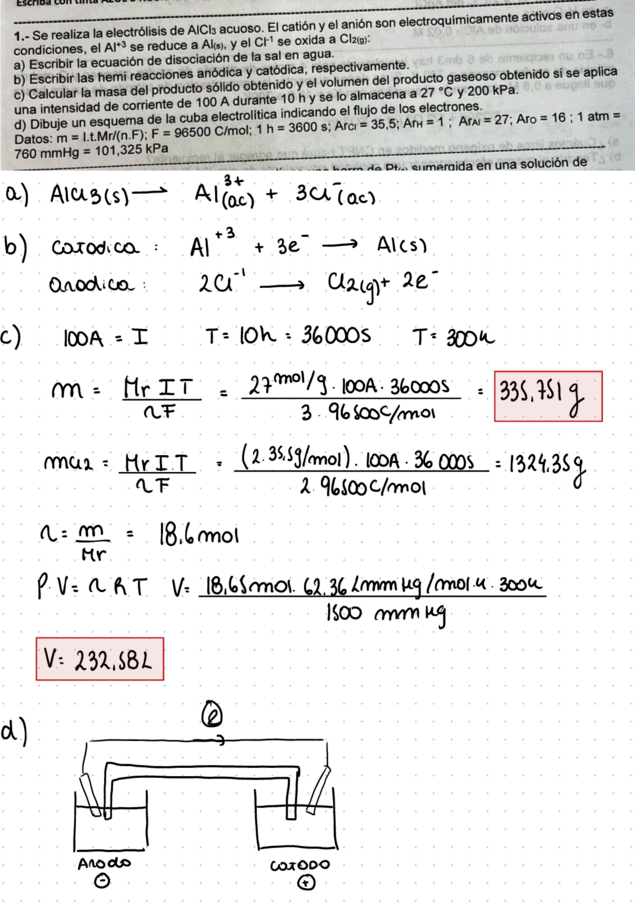 1.- Se realiza la electrólisis de AlCl₃ acuoso. El catión y el anión son electroquímicamente activos en estas
condiciones, el Al⁺³ se reduce a Al(s), y el Cl⁻¹ se oxida a Cl₂(g):
a) Escribir la ecuación de disociación de la sal en agua.
b) Escribir las hemi reacciones anódica y catódica, respectivamente.
c) Calcular la masa del producto sólido obtenido y el volumen del producto gaseoso obtenido si se aplica
una intensidad de corriente de 100 A durante 10 h y se lo almacena a 27 °C y 200 kPa.
d) Dibuje un esquema de la cuba electrolítica indicando el flujo de los electrones.
Datos: m = I.t.Mr/(n.F); F = 96500 C/mol; 1 h = 3600 s; Ar_Cl = 35,5; Ar_H = 1 ; Ar_Al = 27; Ar_O = 16 ; 1 atm =
760 mmHg = 101,325 kPa
sumergida en una solución de
a) AlCl3(s) → Al³⁺(ac) + 3Cl⁻(ac)
b) catodica : Al⁺³ + 3e⁻ → Al(s)
anodica : 2Cl⁻¹ → Cl2(g) + 2e⁻
c) 100A = I T = 10h = 36000s T = 300K
m = Mr I T / nF = 27 mol/g · 100A · 36000s / 3 · 96500C/mol = 335,751 g
mCl2 = Mr I.T / nF = (2.35,5g/mol) . 100A · 36 000s / 2.96500C/mol = 1324,35g
n = m / Mr = 18,6mol
P.V = n R T V = 18,65mol. 62,36 Lmm Hg/mol.K. 300K / 1500 mm Hg
V = 232,58L
d) e
Anodo Catodo
⊖ ⊕